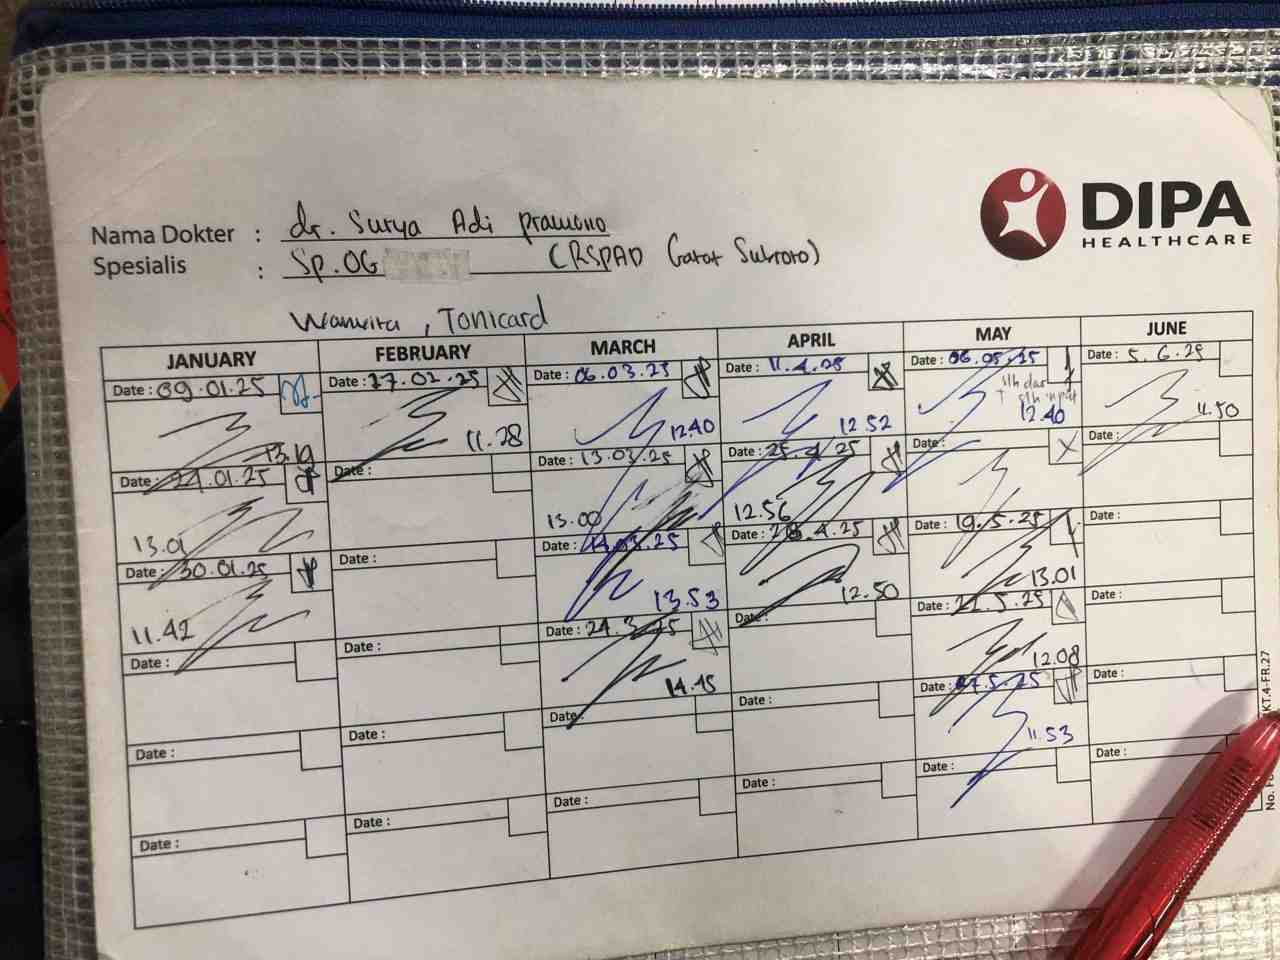 DIPA
HEALTHCARE
Nama Dokter : dr. Surya Adi Pramono
Spesialis : Sp.OG (RSPAD Gatot Subroto)
, Tonicard
JANUARY FEBRUARY MARCH APRIL MAY JUNE
Date : 09.01.25 Date : 27.02.25 Date : 06.03.25 Date : 11.4.25 Date : 06.05.25 Date : 5.6.25
13.19 11.28 12.40 12.52 12.40 11.50
Date : 24.01.25 Date : Date : 13.03.25 25.4.25 Date : Date :
13.01 13.00 12.56
Date : 30.01.25 Date : Date : 14.03.25 Date : 28.4.25 Date : 19.5.25 Date :
11.42 13.53 12.50 13.01
Date : Date : Date : 24.3.25 Date : Date : 22.5.25 Date :
14.15 12.08
Date : Date : Date : Date : Date : 27.5.25 Date :
11.53
Date : Date : Date : Date : Date : Date :
KT.4-FR.27